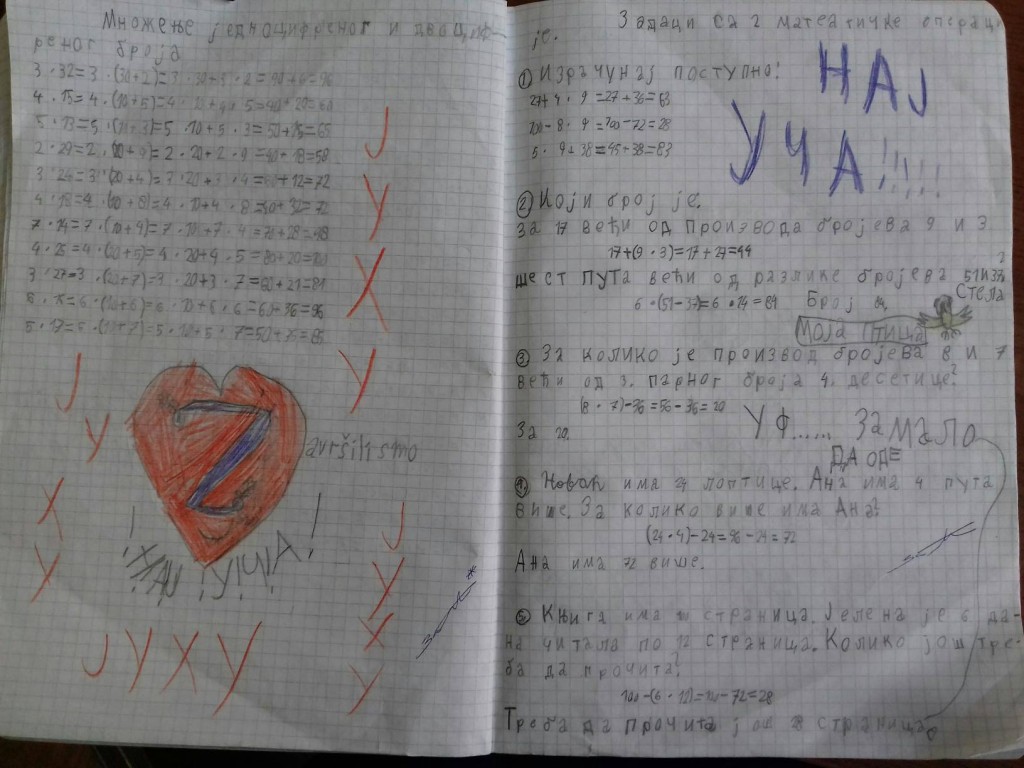 Множење једноциф­реног и двоциф-
реног броја
3 · 32=3 · (30+2)=3 · 30+3 · 2=90+6=96
4 · 15=4 · (10+5)=4 · 10+4 · 5=40+20=60
5 · 13=5 · (10+3)=5 · 10+5 · 3=50+15=65
2 · 29=2 · (20+9)=2 · 20+2 · 9=40+18=58
3 · 24=3 · (20+4)=3 · 20+3 · 4=60+12=72
4 · 18=4 · (10+8)=4 · 10+4 · 8=40+32=72
7 · 14=7 · (10+4)=7 · 10+7 · 4=70+28=98
4 · 25=4 · (20+5)=4 · 20+4 · 5=80+20=100
3 · 27=3 · (20+7)=3 · 20+3 · 7=60+21=81
6 · 16=6 · (10+6)=6 · 10+6 · 6=60+36=96
5 · 17=5 · (10+7)=5 · 10+5 · 7=50+35=85
Ј
У
Х
У
Ј
У
Х
У
Završili smo
! НАЈ УЧА! !
Ј
У
Х
У
Ј У Х У
Задаци са 2 матеатичке операци-
је.
НАЈ
УЧА!!!!!
① Израчунај поступно:
27+4 · 9=27+36=63
100-8 · 9=100-72=28
5 · 9+38=45+38=83
② Који број је.
За 17 већи од производа бројева 9 и 3.
17+(9 · 3)=17+27=44
шест пута већи од разлике бројева 51 и 37?
6 · (51-37)=6 · 14=84 Број
Стела
Моја птица
③ За колико је производ бројева 8 и 7
већи од 3. парног броја 4. десетице?
(8 · 7)-36=56-36=20
За 20.
УФ...... ЗАМАЛО
ДА ОДЕ
④ Новак има 24 лоптице. Ана има 4 пута
више. За колико више има Ана?
(24 · 4)-24=96-24=72
Ана има 72 више.
⑤ Књига има 100 страница. Јелена је 6 да-
на читала по 12 страница. Колико још тре-
ба да прочита?
100-(6 · 12)=100-72=28
Треба да прочита још 28 страница.